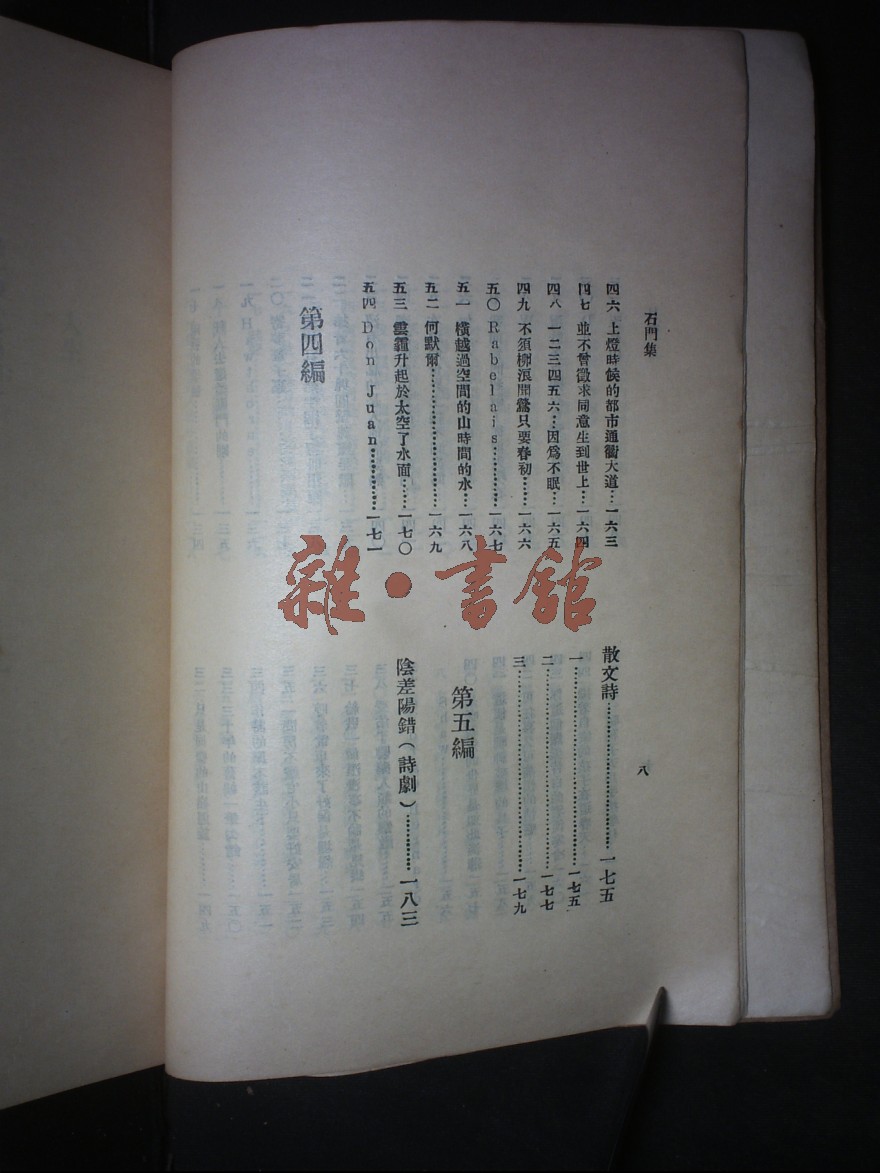 石門集
四六 上燈時候的都市通衢大道…一六三
四七 並不曾徵求同意生到世上…一六四
四八 一二三四五六…因爲不眠…一六五
四九 不須柳浪聞鶯只要春初……一六六
五〇 Rabelais………一六七
五一 橫越過空間的山時間的水…一六八
五二 何默爾…………………一六九
五三 雲霾升起於太空了水面……一七〇
五四 Don Juan…………一七一
第四編
散文詩…………………一七五
一…………………一七五
二…………………一七七
三…………………一七九
第五編
陰差陽錯(詩劇)…………一八三
八
雜·書館